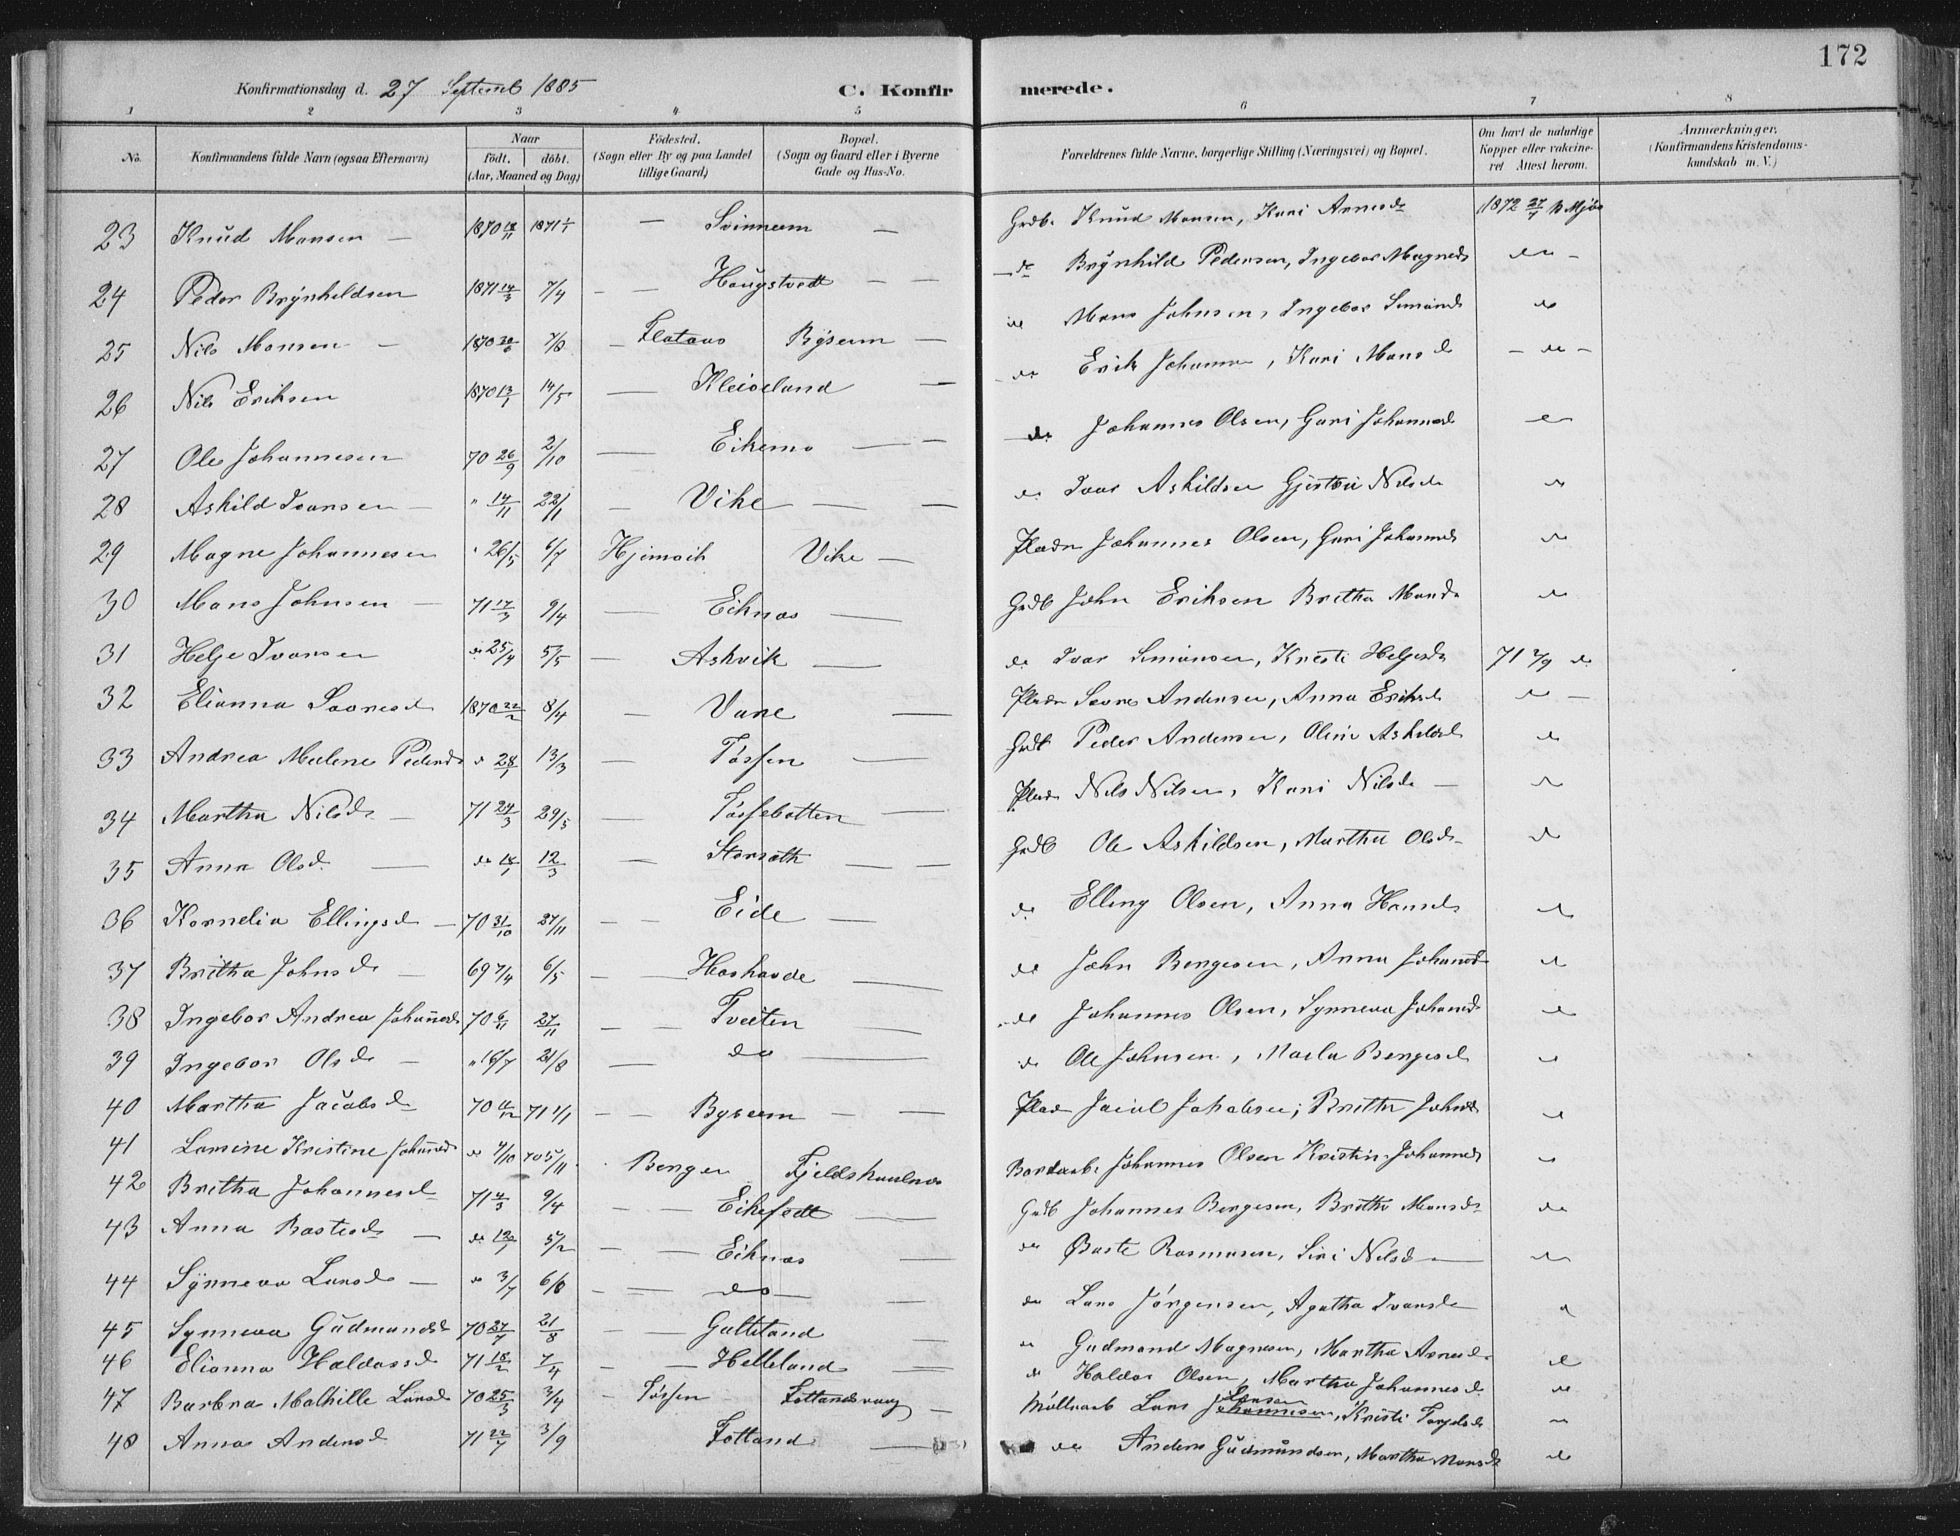 172
Konfirmationsdag d. 27 Septemb 1885 C. Konfirmerede.
1 2 3 4 5 6 7 8
No. Konfirmandens fulde Navn (ogsaa Efternavn) Naar født. døbt. (Aar, Maaned og Dag) Fødested. (Sogn eller By og paa Landet tillige Gaard) Bopæl. (Sogn og Gaard eller i Byerne Gade og Hus-No. Forældrenes fulde Navne, borgerlige Stilling (Næringsvei) og Bopæl. Om havt de naturlige Kopper eller vakcineret Attest herom. Anmærkninger. (Konfirmandens Kristendomskundskab m. V.)
23 Knud Monsen — 1870 1871 1/1 — Svinnem — Grdb. Knud Monsen, Kari Arnesd 1872 27/1
24 Peder Brynhildsen 1871 14/3 7/4 — — Hougstvedt — — do Brynhild Pedersen, Ingebor Magnesd do
25 Nils Monsen — 1870 20/6 7/8 — Flataas Byseum — do Mons Johnsen, Ingebor Simonsd do
26 Nils Eriksen 1870 13/1 14/5 — Kleiveland — do Erik Johannes, Kari Monsd — do —
27 Ole Johannesen 70 26/9 2/10 — Eikemo — — do Johannes Olsen, Guri Johannesd do
28 Askild Ivarsen — " 14/11 22/11 — Vike — — do Ivar Askildsen Gjertrü Nilsd do
29 Magne Johannesen " 26/5 6/7 Hjimvik Vike — Pladsm Johannes Olsen, Guri Johannesd do
30 Mons Johnsen — 71 17/3 9/4 — Eiknæs — Grdb John Eriksen Britha Monsd do
31 Helje Ivarsen do 25/4 5/5 — Askvik — do Ivar Simonsen, Kristi Heljesd 71 2/9 do
32 Elianna Sævresd 1870 22/2 8/4 — Vare — Pladsm Sævre Andersen, Anna Eriksd do —
33 Andrea Malene Pedersd " 28/1 13/3 — Tøssen — Grdb Peder Andersen, Oline Askildsd do
34 Martha Nilsd. — 71 24/3 29/5 — Tøssebotten — Plads Nils Nilsen, Kari Nilsd. — do
35 Anna Olsd. — do 18/1 12/3 — Storsæth — Grdb Ole Askildsen, Martha Olsd. do
36 Kornelia Ellingsd — 70 31/10 27/11 — — Eide — do Elling Olsen, Anna Hansd do
37 Britha Johnsd. — 69 7/4 6/5 — — — do John Bergesen, Anna Johansd do
38 Ingebor Andrea Johannesd 70 6/11 27/11 — — Tveiten — do Johannes Olsen, Synneva Johansd do
39 Ingebor Olsd. — " 16/7 21/8 — — do — do Ole Johnsen, Marta Bergesd do
40 Martha Jacobsd 70 71 1/1 — — Byseum — — Plads Jacob Jakobsen, Britha Johnsd do
41 Lamine Kristine Johannesd do 4/10 70 5/11 Bergen Fjeldskaalnæs Bordarb. Johannes Olsen Kristin Johannesd do
42 Britha Johannesd. 71 4/3 9/4 — — Eikefedt — Grdb Johannes Bergesen, Britha Monsd. do
43 Anna Bastesd. — do 12/1 5/2 — — Eiknæs — do Baste Rasmusen, Siri Nilsd — do
44 Synneva Larsd. — do 3/7 6/8 — — do — do Lars Jørgensen, Agatha Ivarsd do
45 Synneva Gudmundsd 70 27/7 21/8 — — Galteland — do Gudmund Magnesen, Martha Arnesd.
46 Elianna Haldorsd 71 18/2 7/4 — — Helleland — do Haldor Olsen, Martha Johannesd do
47 Barbra Mathille Larsd 70 25/3 3/4 — Tøssen Totlandsvaag — Møllearb Lars Larsen Johannesen, Kristi Torgilsd do
48 Anna Andersd 71 22/7 3/9 — Totland — do Anders Gudmundsen, Martha Monsd do